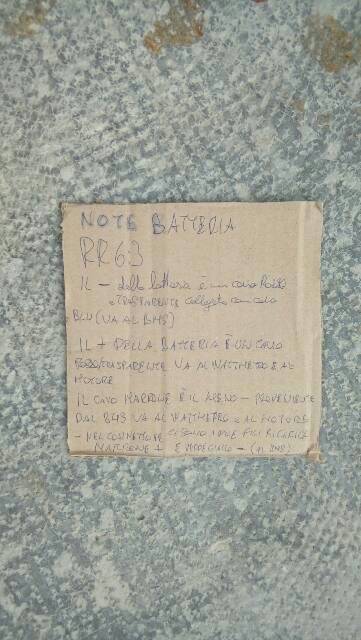 NOTE BATTERIA
RR63
IL - della batteria è un cavo Rosso
e TRASPARENTE collegato con cavo
BLU (VA AL BMS)
IL + DELLA BATTERIA È UN CAVO
ROSSO/TRASPARENTE VA AL WATTMETRO E AL
MOTORE
IL CAVO MARRONE È IL MENO - PROVENIENTE
DAL BMS VA AL WATTMETRO E AL MOTORE
- NEL CONNETTORE CI SONO I DUE FILI RICARICA
MARRONE + E - (AL BMS)